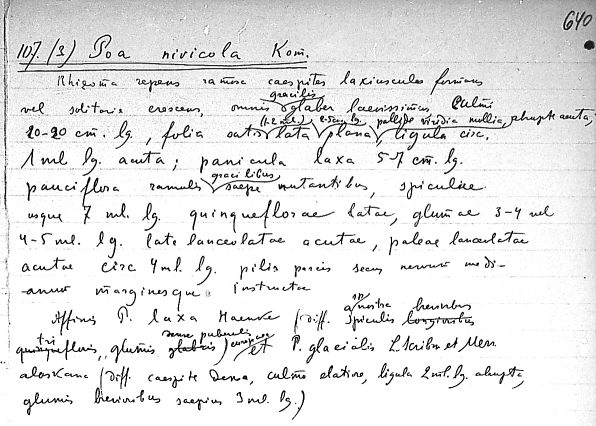 640
107. (3) Poa nivicola Kom.
Rhizoma repens ramosa caespites laxiusculos formans
gracilis
vel solitarie crescens, omnis glaber laevissimus Culmi
(1-2 ml.) 2-5 cm lg. pallide viridia mollia, abrupte acuta,
10-20 cm. lg., folia satis lata plana, ligula circ.
1 ml lg. acuta; panicula laxa 5-7 cm. lg.
gracilibus
pauciflora ramulis saepe nutantibus, spiculae
usque 7 ml. lg. quinqueflorae latae, glumae 3-4 vel
4-5 ml. lg. late lanceolatae acutae, paleae lanceolatae
acutae circ 4 ml. lg. pilis parcis secus nervum medi-
anum marginesque instructae
a nostra brevioribus
Affinis P. laxa Haenke (diff. spiculis longioribus
tri
floris, glumis glabris) et P. glacialis Scribn. et Merr.
alaskana (diff. caespite densa, culmo elatiore, ligula 2 ml. lg. abrupta,
glumis brevioribus saepius 3 ml. lg.)